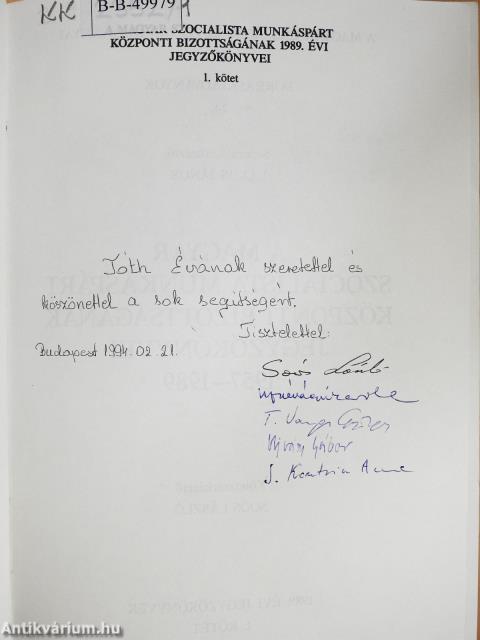 KK
B-B-49979
SZOCIALISTA MUNKÁSPÁRT
KÖZPONTI BIZOTTSÁGÁNAK 1989. ÉVI
JEGYZŐKÖNYVEI
1. kötet
Tóth Évának szeretettel és
köszönettel a sok segítségért.
Tisztelettel:
Budapest 1994.02.21.
Soós László
T. Varga György
Ujváry Gábor
S. Kosztricz Anna
Antikvárium.hu
Antikvárium.hu